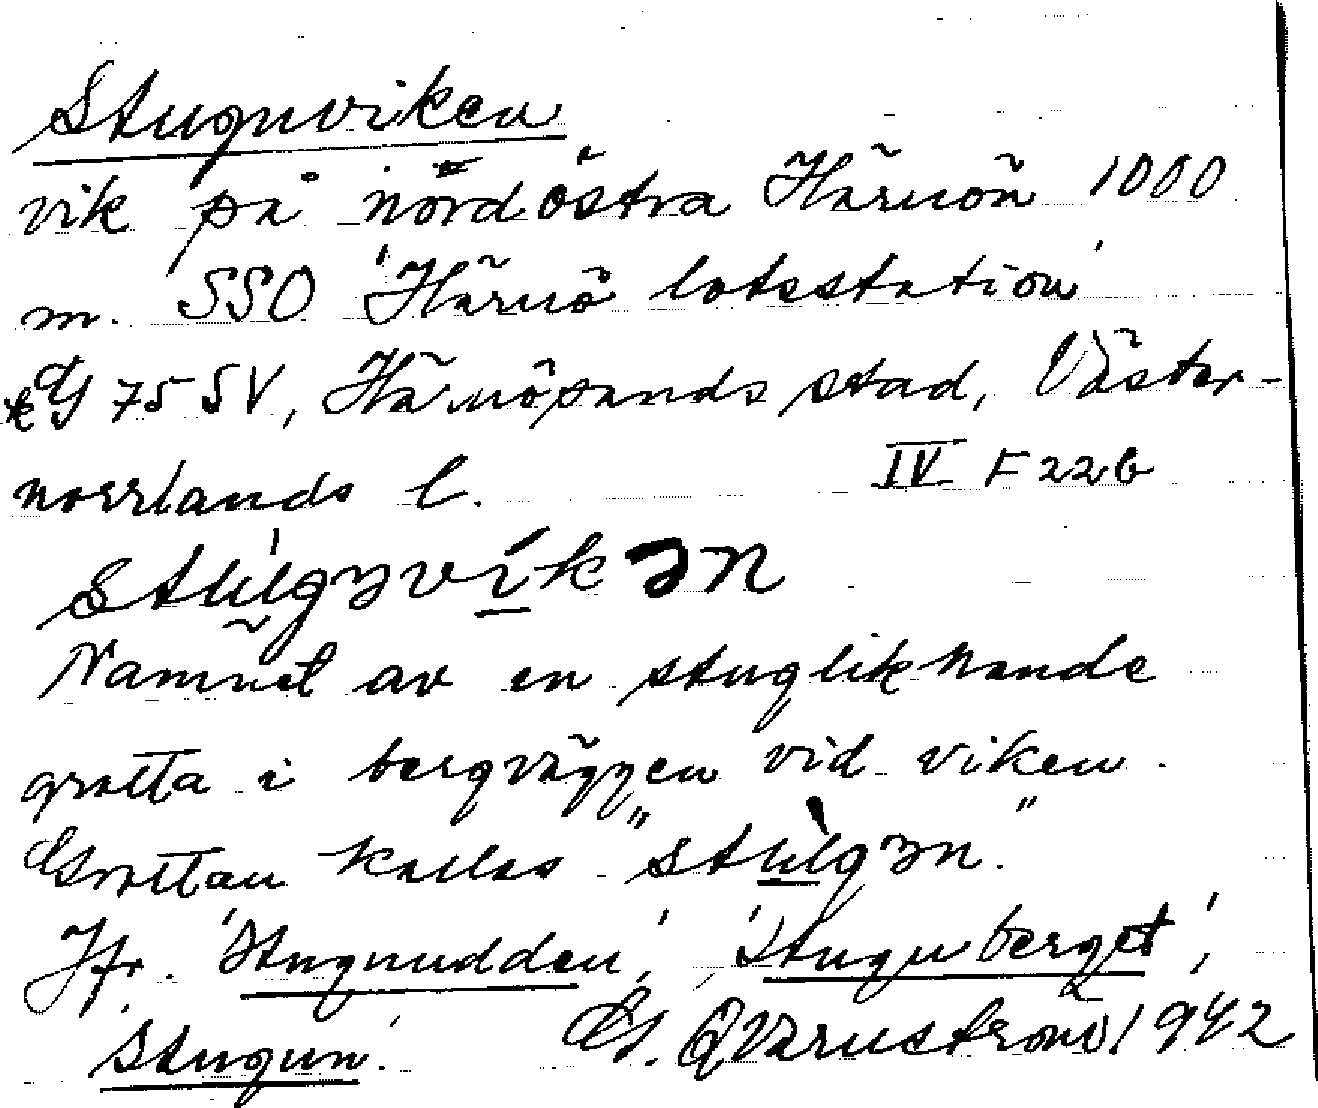 Stuguviken
vik på nordöstra Härnön 1000
m. SSO 'Härnö lotsstation'
75 SV, Härnösands stad, Väster-
norrlands l. IV F22b
Namnet av en stugliknande
grotta i bergväggen vid viken.
Grottan kallas
Jfr. 'Stugnudden', 'Stuguberget',
'Stugun'. G. Qvarnström 1942